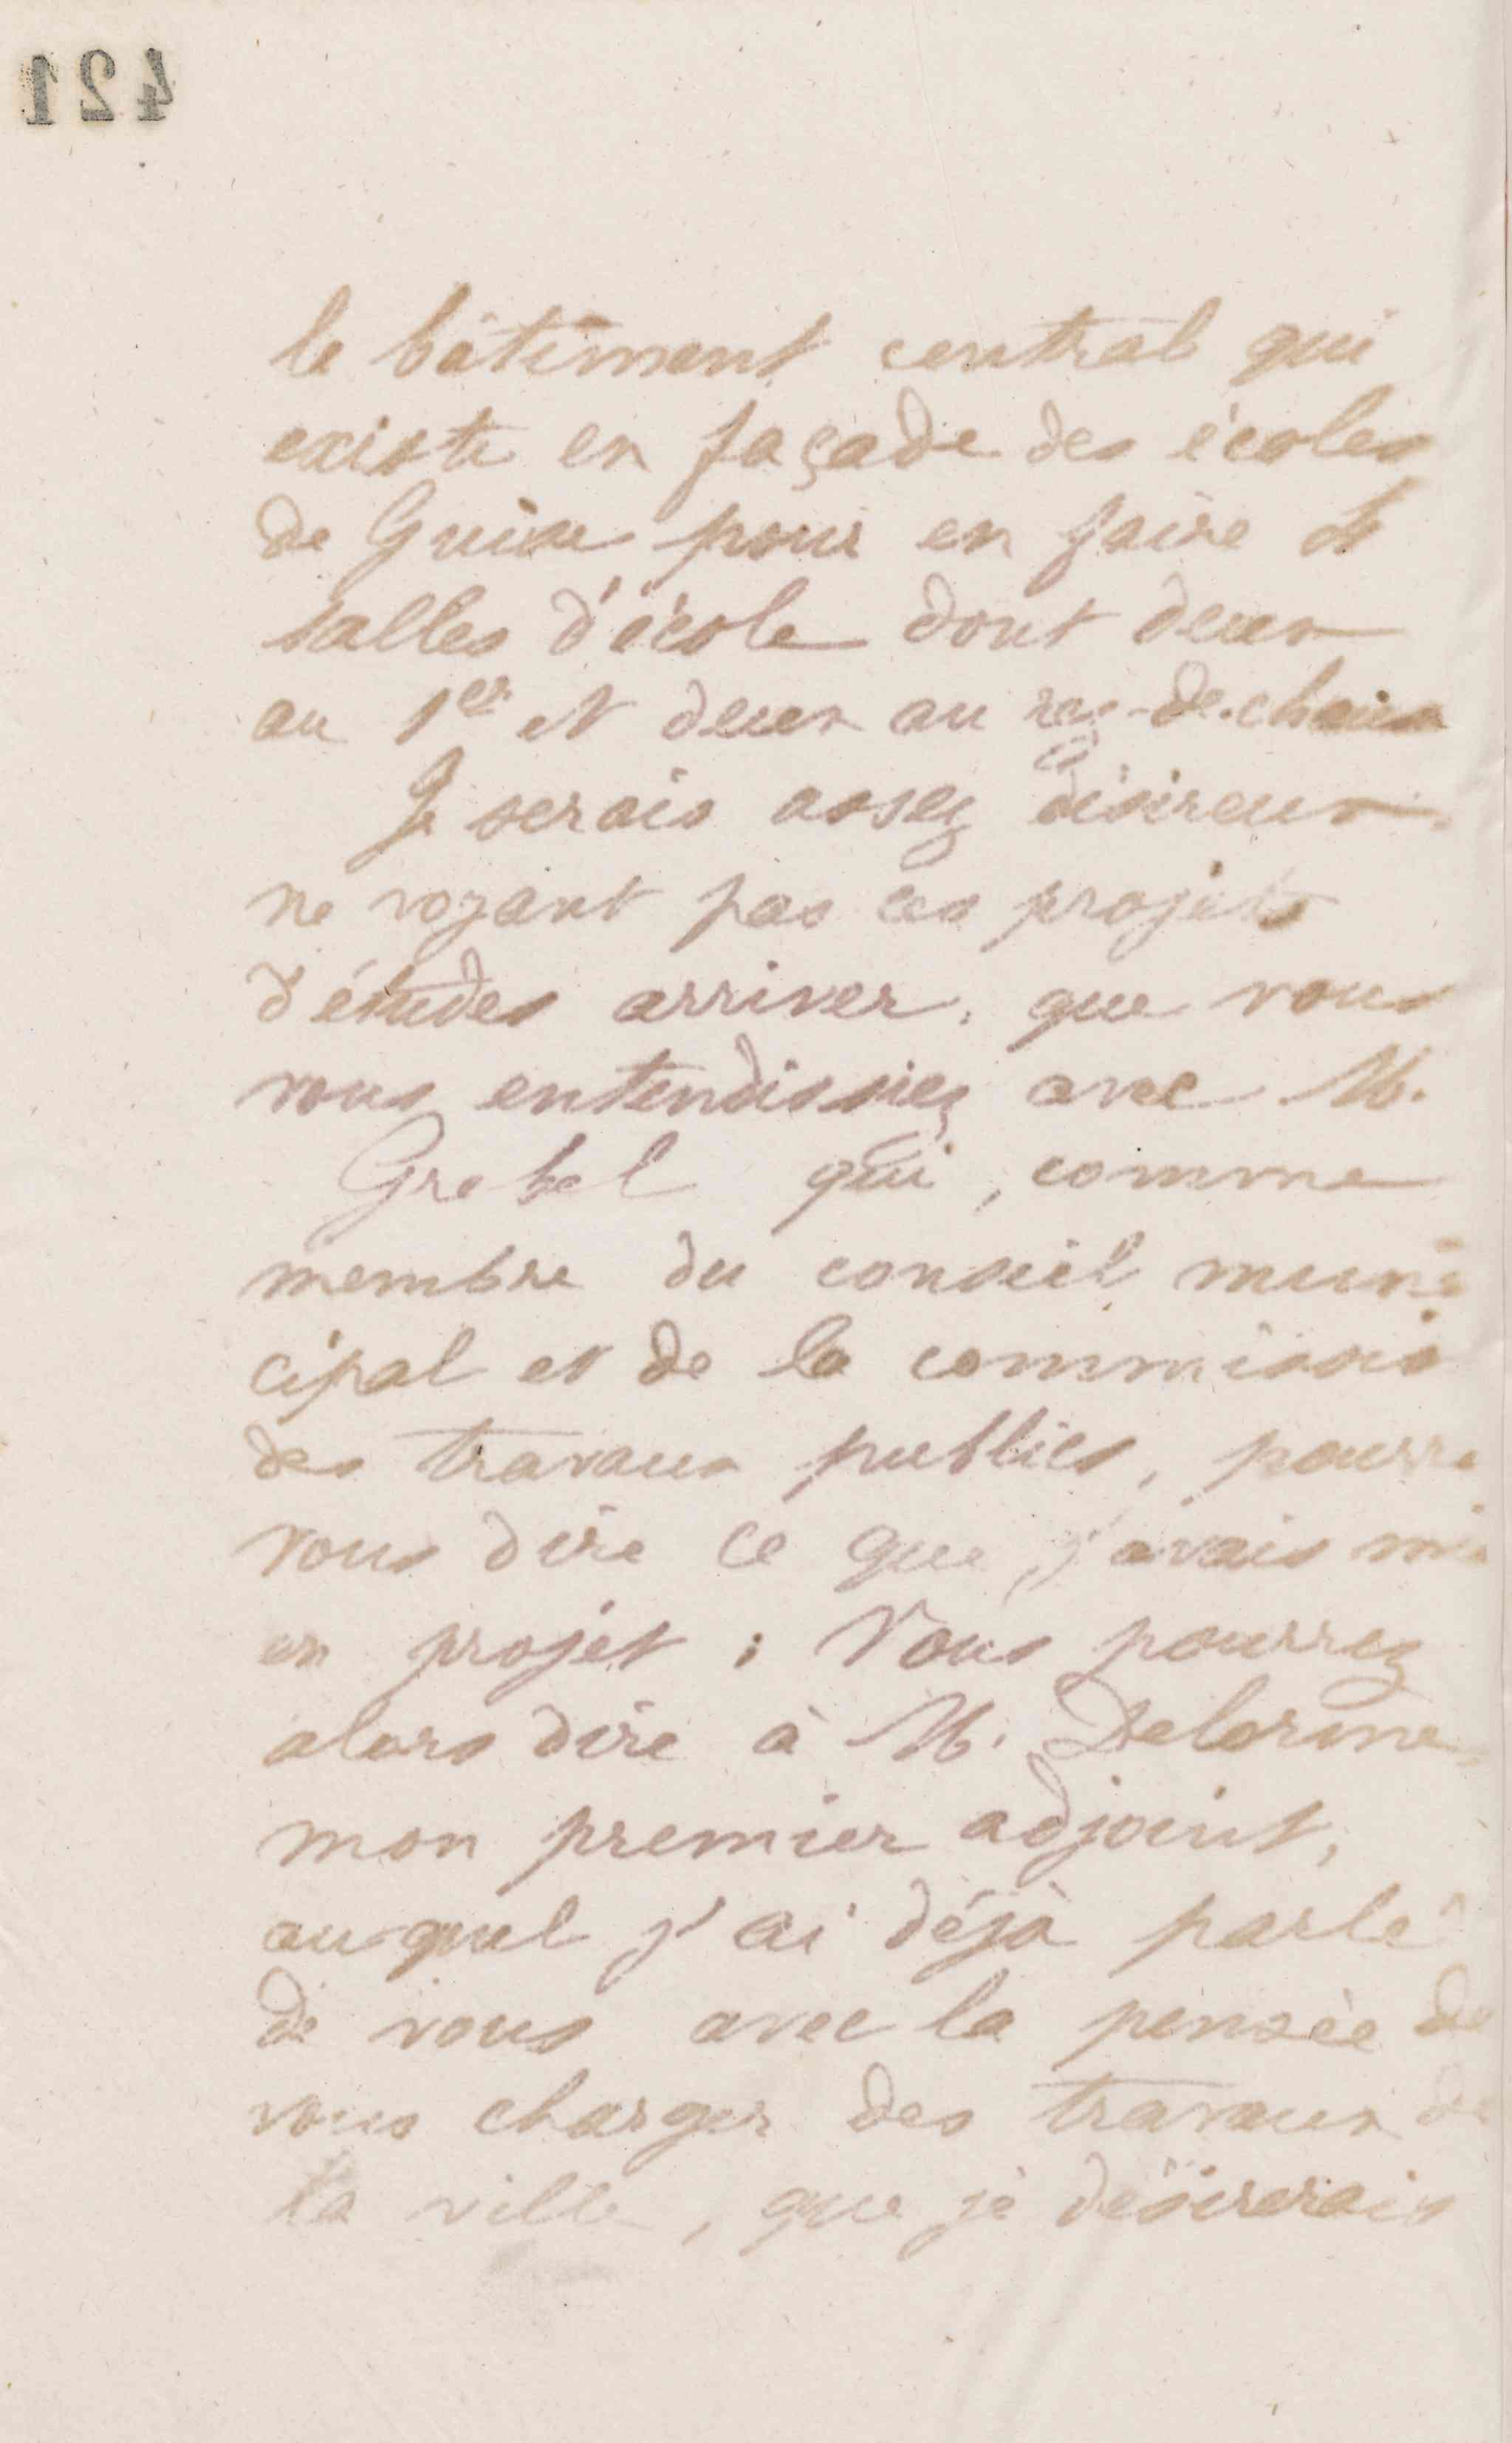 421
le bâtiment central qui
existe en façade des écoles
de Guise pour en faire 4
salles d'école dont deux
au 1er et deux au rez-de-chaus
Je serais assez désireux
ne voyant pas ces projets
d'études arriver, que vous
vous entendissiez avec M.
Grebel qui, comme
membre du conseil muni
cipal et de la commissio
des travaux publics, pourra
vous dire ce que j'avais mis
en projet ; Vous pourrez
alors dire à M. Delorme,
mon premier adjoint,
auquel j'ai déjà parlé
de vous avec la pensée de
vous charger des travaux de
la ville, que je désirerais